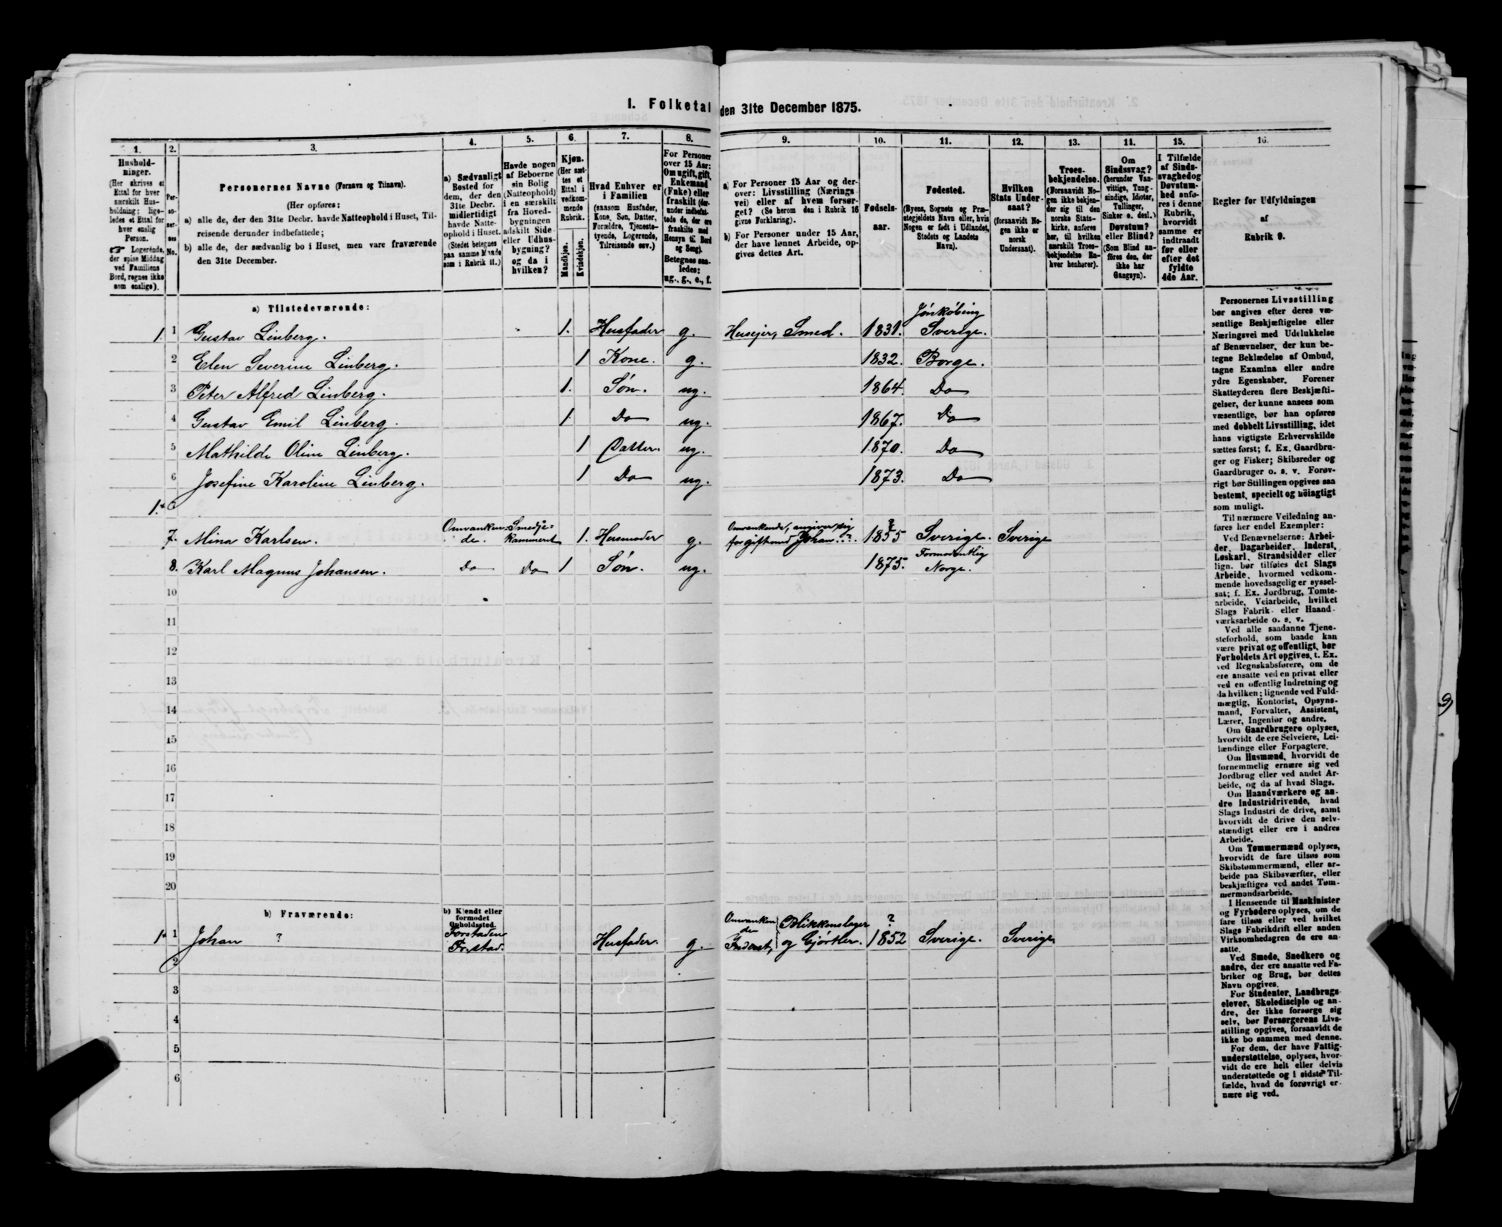 1. Folketal den 31te December 1875.
1. 2. 3. 4. 5. 6. 7. 8. 9. 10. 11. 12. 13. 14. 15. 16.
Hushold-
ninger.
(Her skrives et
Ettal for hver
særskilt Hus-
holdning; lige-
ledes et Ettal for
hver enslig
Person.
☞ Logerende,
der spise Middag
ved Familiens
Bord, regnes ikke
som enslige).
Per-
so-
ner-
nes
No.
Personernes Navne (Fornavn og Tilnavn).
(Her opføres:
a) alle de, der den 31te Decbr. havde Natteophold i Huset, Til-
reisende derunder indbefattede;
b) alle de, der sædvanlig bo i Huset, men vare fraværende
den 31te December.
a) Sædvanligt
Bosted for
dem, der den
31te Decbr.
midlertidigt
havde Natte-
ophold i Huset.
(Stedet betegnes
paa samme Maade
som i Rubrik 11.)
Havde nogen
af Beboerne
sin Bolig
(Natteophold)
i en særskilt
fra Hoved-
bygningen
adskilt Side
eller Udhus-
bygning?
og da i
hvilken?
Kjøn.
(Her sæt-
tes et
Ettal i
vedkom-
mende
Rubrik.
Mandkjøn.
Kvindekjøn.
Hvad Enhver er
i Familien
(saasom Husfader,
Kone, Søn, Datter,
Forældre, Tjeneste-
tyende, Logerende,
Tilreisende osv.)
For Personer
over 15 Aar:
Om ugift, gift,
Enkemand
(Enke) eller
fraskilt
Betegnes saa-
ledes:
ug., g., e., f.
a) For Personer 15 Aar og der-
over: Livsstilling (Nærings
vei) eller af hvem forsør-
get? (Se herom den i Rubrik 16
givne Forklaring).
b) For Personer under 15 Aar,
der have lønnet Arbeide, op-
gives dettes Art.
Fødsels-
aar.
Fødested.
(Byens, Sognets og Præ-
stegjeldets Navn eller, hvis
Nogen er født i Udlandet,
Stedets og Landets
Navn).
Hvilken
Stats Under-
saat?
(forsaavidt No-
gen ikke er
norsk
Undersaat).
Troes-
bekjendelse.
(Forsaavidt No-
gen ikke bekjen-
der sig til den
norske Stats-
kirke, anføres
her, til hvilken
særskilt Troes-
bekjendelse En-
hver henhører).
Om
Sindssvag?
Døvstum?
eller Blind?
(Som Blind an-
føres den, der
ikke har
Gangsyn).
I Tilfælde
af Sinds-
svaghed og
Døvstum-
hed anfø-
res i denne
Rubrik,
hvorvidt
samme er
indtraadt
før eller
efter det
fyldte
4de Aar.
Regler for Udfyldningen
af
Rubrik 9.
a) Tilstedeværende:
1. 1 Gustav Linberg. 1. Husfader g. Huseier, Smed. 1831. Jönköbing Sverige.
2 Elen Severine Linberg. 1 Kone. g. 1832. Borge.
3 Peter Alfred Linberg. 1. Søn. ug. 1864. Do
4 Gustav Emil Linberg. 1 Do ug. 1867. Do
5 Mathilde Oline Linberg. 1 Datter. ug. 1870. Do
6 Josefine Karoline Linberg. 1 Do ug. 1873. Do
1.
7. Mina Karlsen. Omvanken-
de. Smedje-
kammeret 1. Husmoder g. Omvankende, angiver sig
for gift med Johan ..?.. ? 1855 Sverige. Sverige
8. Karl Magnus Johansen. Do Do 1 Søn. ug. 1875. Formodentlig
Norge.
10
11
12
13
14
15
16
17
18
19
20
b) Fraværende:
b) Kjendt eller
formodet
Opholdssted.
1. 1 Johan ? Forstaden
Fr.stad. Husfader. g. Omvanken
de
Inderst, Blikkenslager
og Gjørtler. ? 1852 Sverige. Sverige
2
3
4
5
6
Personernes Livsstilling
bør angives efter deres væ-
sentlige Beskjæftigelse eller
Næringsvei med Udelukkelse
af Benævnelser, der kun be-
tegne Beklædelse af Ombud,
tagne Examina eller andre
ydre Egenskaber. Forener
Skatteyderen flere Beskjæfti-
gelser, der kunne ansees som
væsentlige, bør han opføres
med dobbelt Livsstilling, idet
hans vigtigste Erhvervskilde
sættes først; f. Ex. Gaardbru-
ger og Fisker; Skibsreder og
Gaardbruger o. s. v. Forøv-
rigt bør Stillingen opgives saa
bestemt, specielt og nøiagtigt
som muligt.
Til nærmere Veiledning an-
føres her endel Exempler:
Ved Benævnelserne: Arbei-
der, Dagarbeider, Inderst,
Løskarl, Strandsidder eller
lign. bør tilføies det Slags
Arbeide, hvormed vedkom-
mende hovedsagelig er syssel-
sat; f. Ex. Jordbrug, Tomte-
arbeide, Veiarbeide, hvilket
Slags Fabrik- eller Haand-
værksarbeide o. s. v.
Ved alle saadanne Tjene-
steforhold, som baade kan
være privat og offentligt, bør
Forholdets Art opgives, t. Ex.
ved Regnskabsførere, om de
ere ansatte ved en privat eller
ved en offentlig Indretning og
da hvilken; lignende ved Fuld-
mægtig, Kontorist, Opsyns-
mand, Forvalter, Assistent,
Lærer, Ingeniør og andre.
Om Gaardbrugere oplyses,
hvorvidt de ere Selveiere, Lei-
lændinge eller Forpagtere.
Om Husmænd, hvorvidt de
fornemmelig ernære sig ved
Jordbrug eller ved andet Ar-
beide, og da af hvad Slags.
Om Haandværkere og an-
dre Industridrivende, hvad
Slags Industri de drive, samt
hvorvidt de drive den selv-
stændigt eller ere i andres
Arbeide.
Om Tømmermænd oplyses,
hvorvidt de fare tilsøs som
Skibstømmermænd, eller ar-
beide paa Skibsværfter, eller
beskjæftiges ved andet Tøm-
mermandsarbeide.
I Henseende til Maskinister
og Fyrbødere oplyses, om de
fare tilsøs eller ved hvilket
Slags Fabrikdrift eller anden
Virksomhedsgren de ere an-
satte.
Ved Smede, Snedkere og
andre, der ere ansatte ved Fa-
briker og Brug, bør dettes
Navn opgives.
For Studenter, Landbrugs-
elever, Skoledisciple og an-
dre, der ikke forsørge sig
selv, bør Forsørgerens Livs-
stilling opgives, forsaavidt de
ikke bo sammen med denne.
For dem, der have Fattig-
understøttelse, oplyses, hvor-
vidt de ere helt eller delvis
understøttede og i sidste Til-
fælde, hvad de forøvrigt er-
nære sig ved.